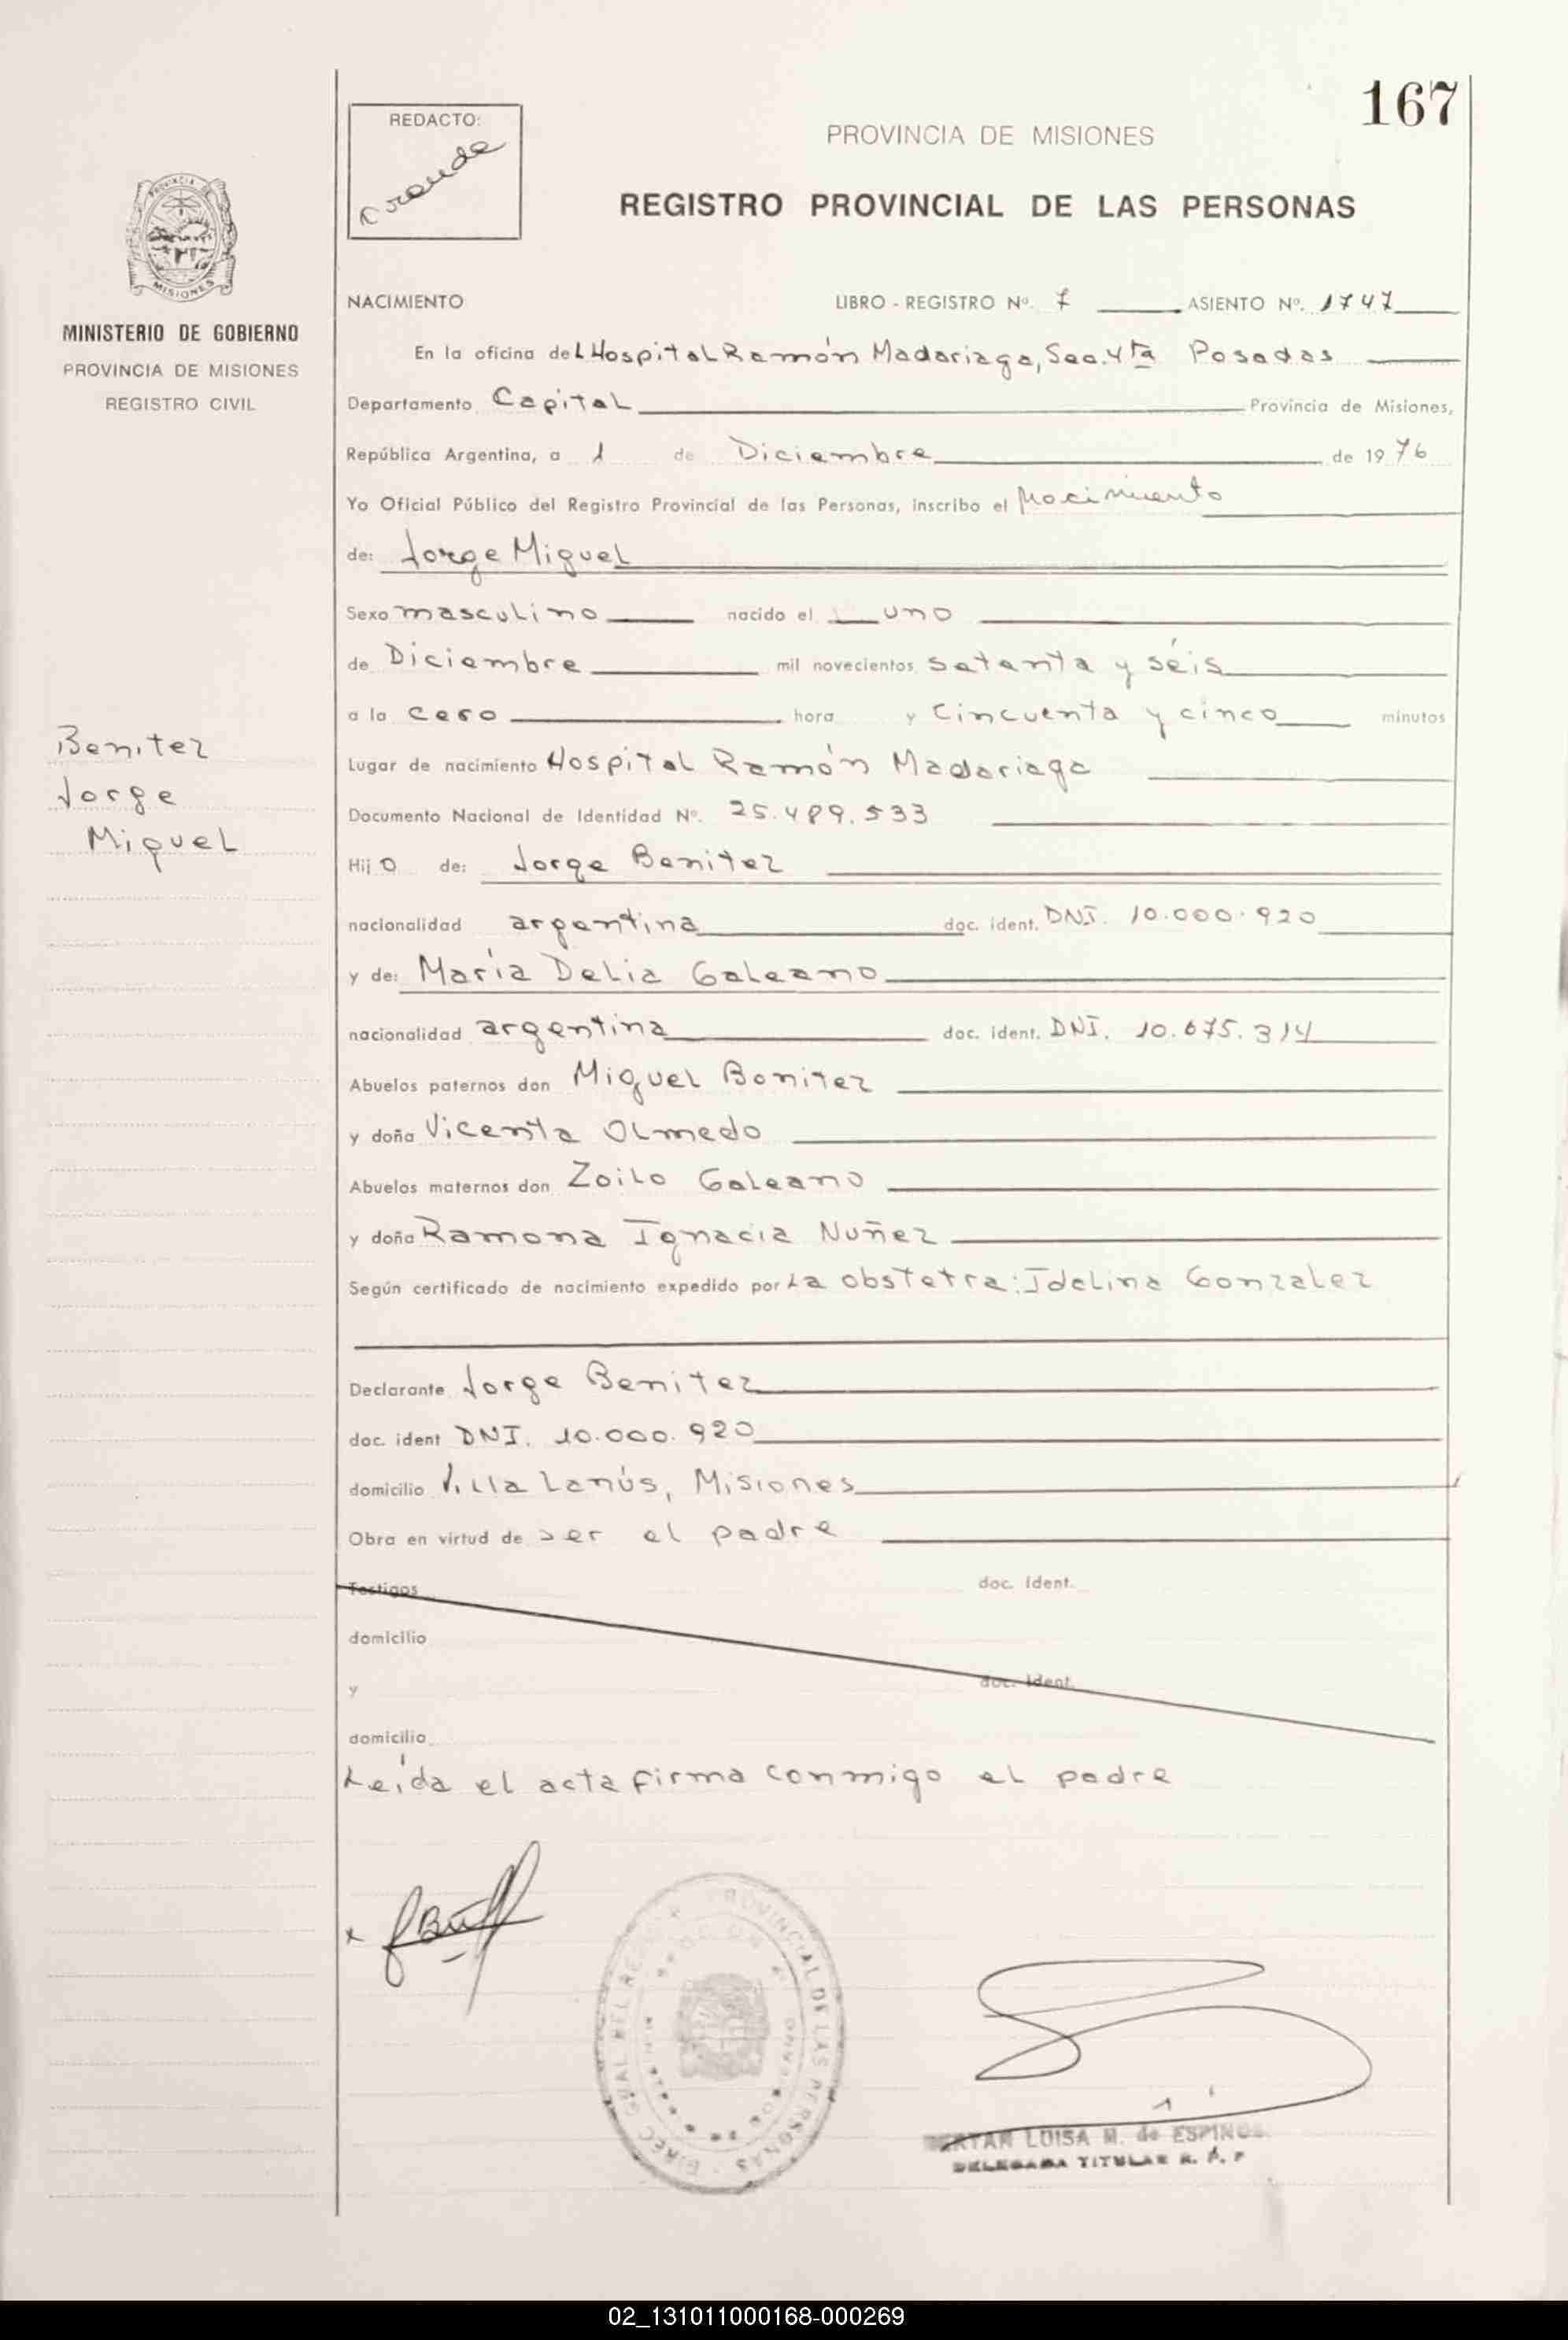 167
REDACTO:
PROVINCIA DE MISIONES
REGISTRO PROVINCIAL DE LAS PERSONAS
PROVINCIA DE
MISIONES
MINISTERIO DE GOBIERNO
PROVINCIA DE MISIONES
REGISTRO CIVIL
Benitez
Jorge
Miguel
NACIMIENTO LIBRO - REGISTRO Nº. 7 ASIENTO Nº. 1747
En la oficina del Hospital Ramón Madariaga, Sec. 4ta Posadas
Departamento Capital Provincia de Misiones,
República Argentina, a 1 de Diciembre de 1976
Yo Oficial Público del Registro Provincial de las Personas, inscribo el Nacimiento
de: Jorge Miguel
Sexo masculino nacido el uno
de Diciembre mil novecientos setenta y séis
a la cero hora y cincuenta y cinco minutos
Lugar de nacimiento Hospital Ramón Madariaga
Documento Nacional de Identidad Nº. 25.489.533
Hijo de: Jorge Benitez
nacionalidad argentina doc. ident. DNI. 10.000.920
y de: María Delia Galeano
nacionalidad argentina doc. ident. DNI. 10.675.314
Abuelos paternos don Miguel Benitez
y doña Vicenta Olmedo
Abuelos maternos don Zoilo Galeano
y doña Ramona Ignacia Nuñez
Según certificado de nacimiento expedido por la obstetra: Idelina Gonzalez
Declarante Jorge Benitez
doc. ident DNI. 10.000.920
domicilio Villa Lanús, Misiones
Obra en virtud de ser el padre
Testigos doc. ident.
domicilio
y doc. ident.
domicilio
Leída el acta firma conmigo el padre
PROVINCIAL DE LAS PERSONAS
LUISA M. de ESPINOS
DELEGADA TITULAR R. P. P
02_131011000168-000269